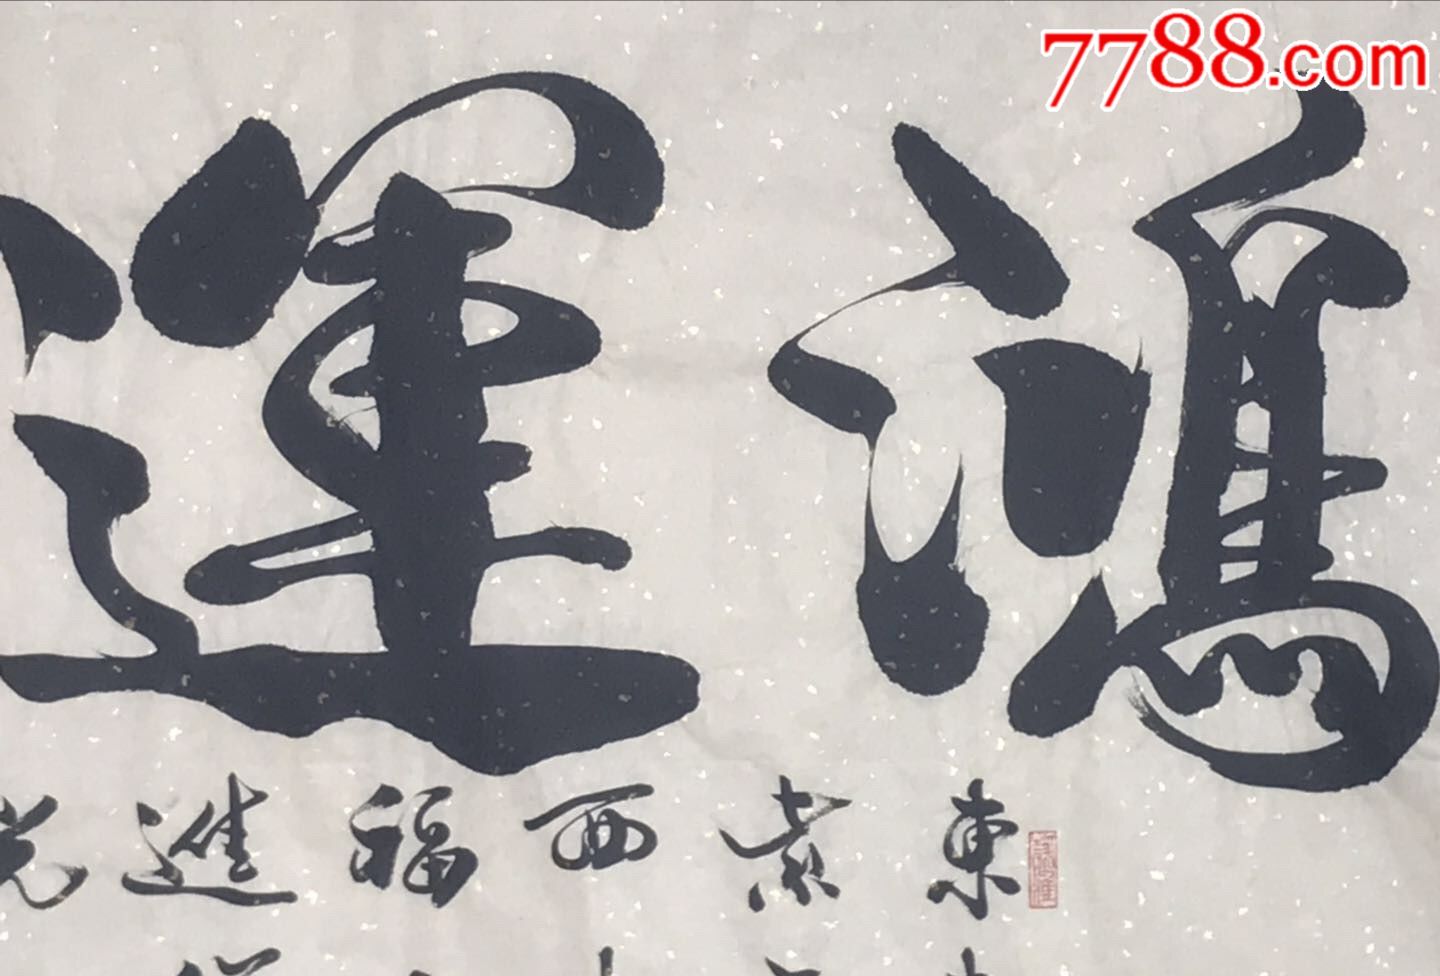 7788.com
鴻運
東
紫
西
福
進
光